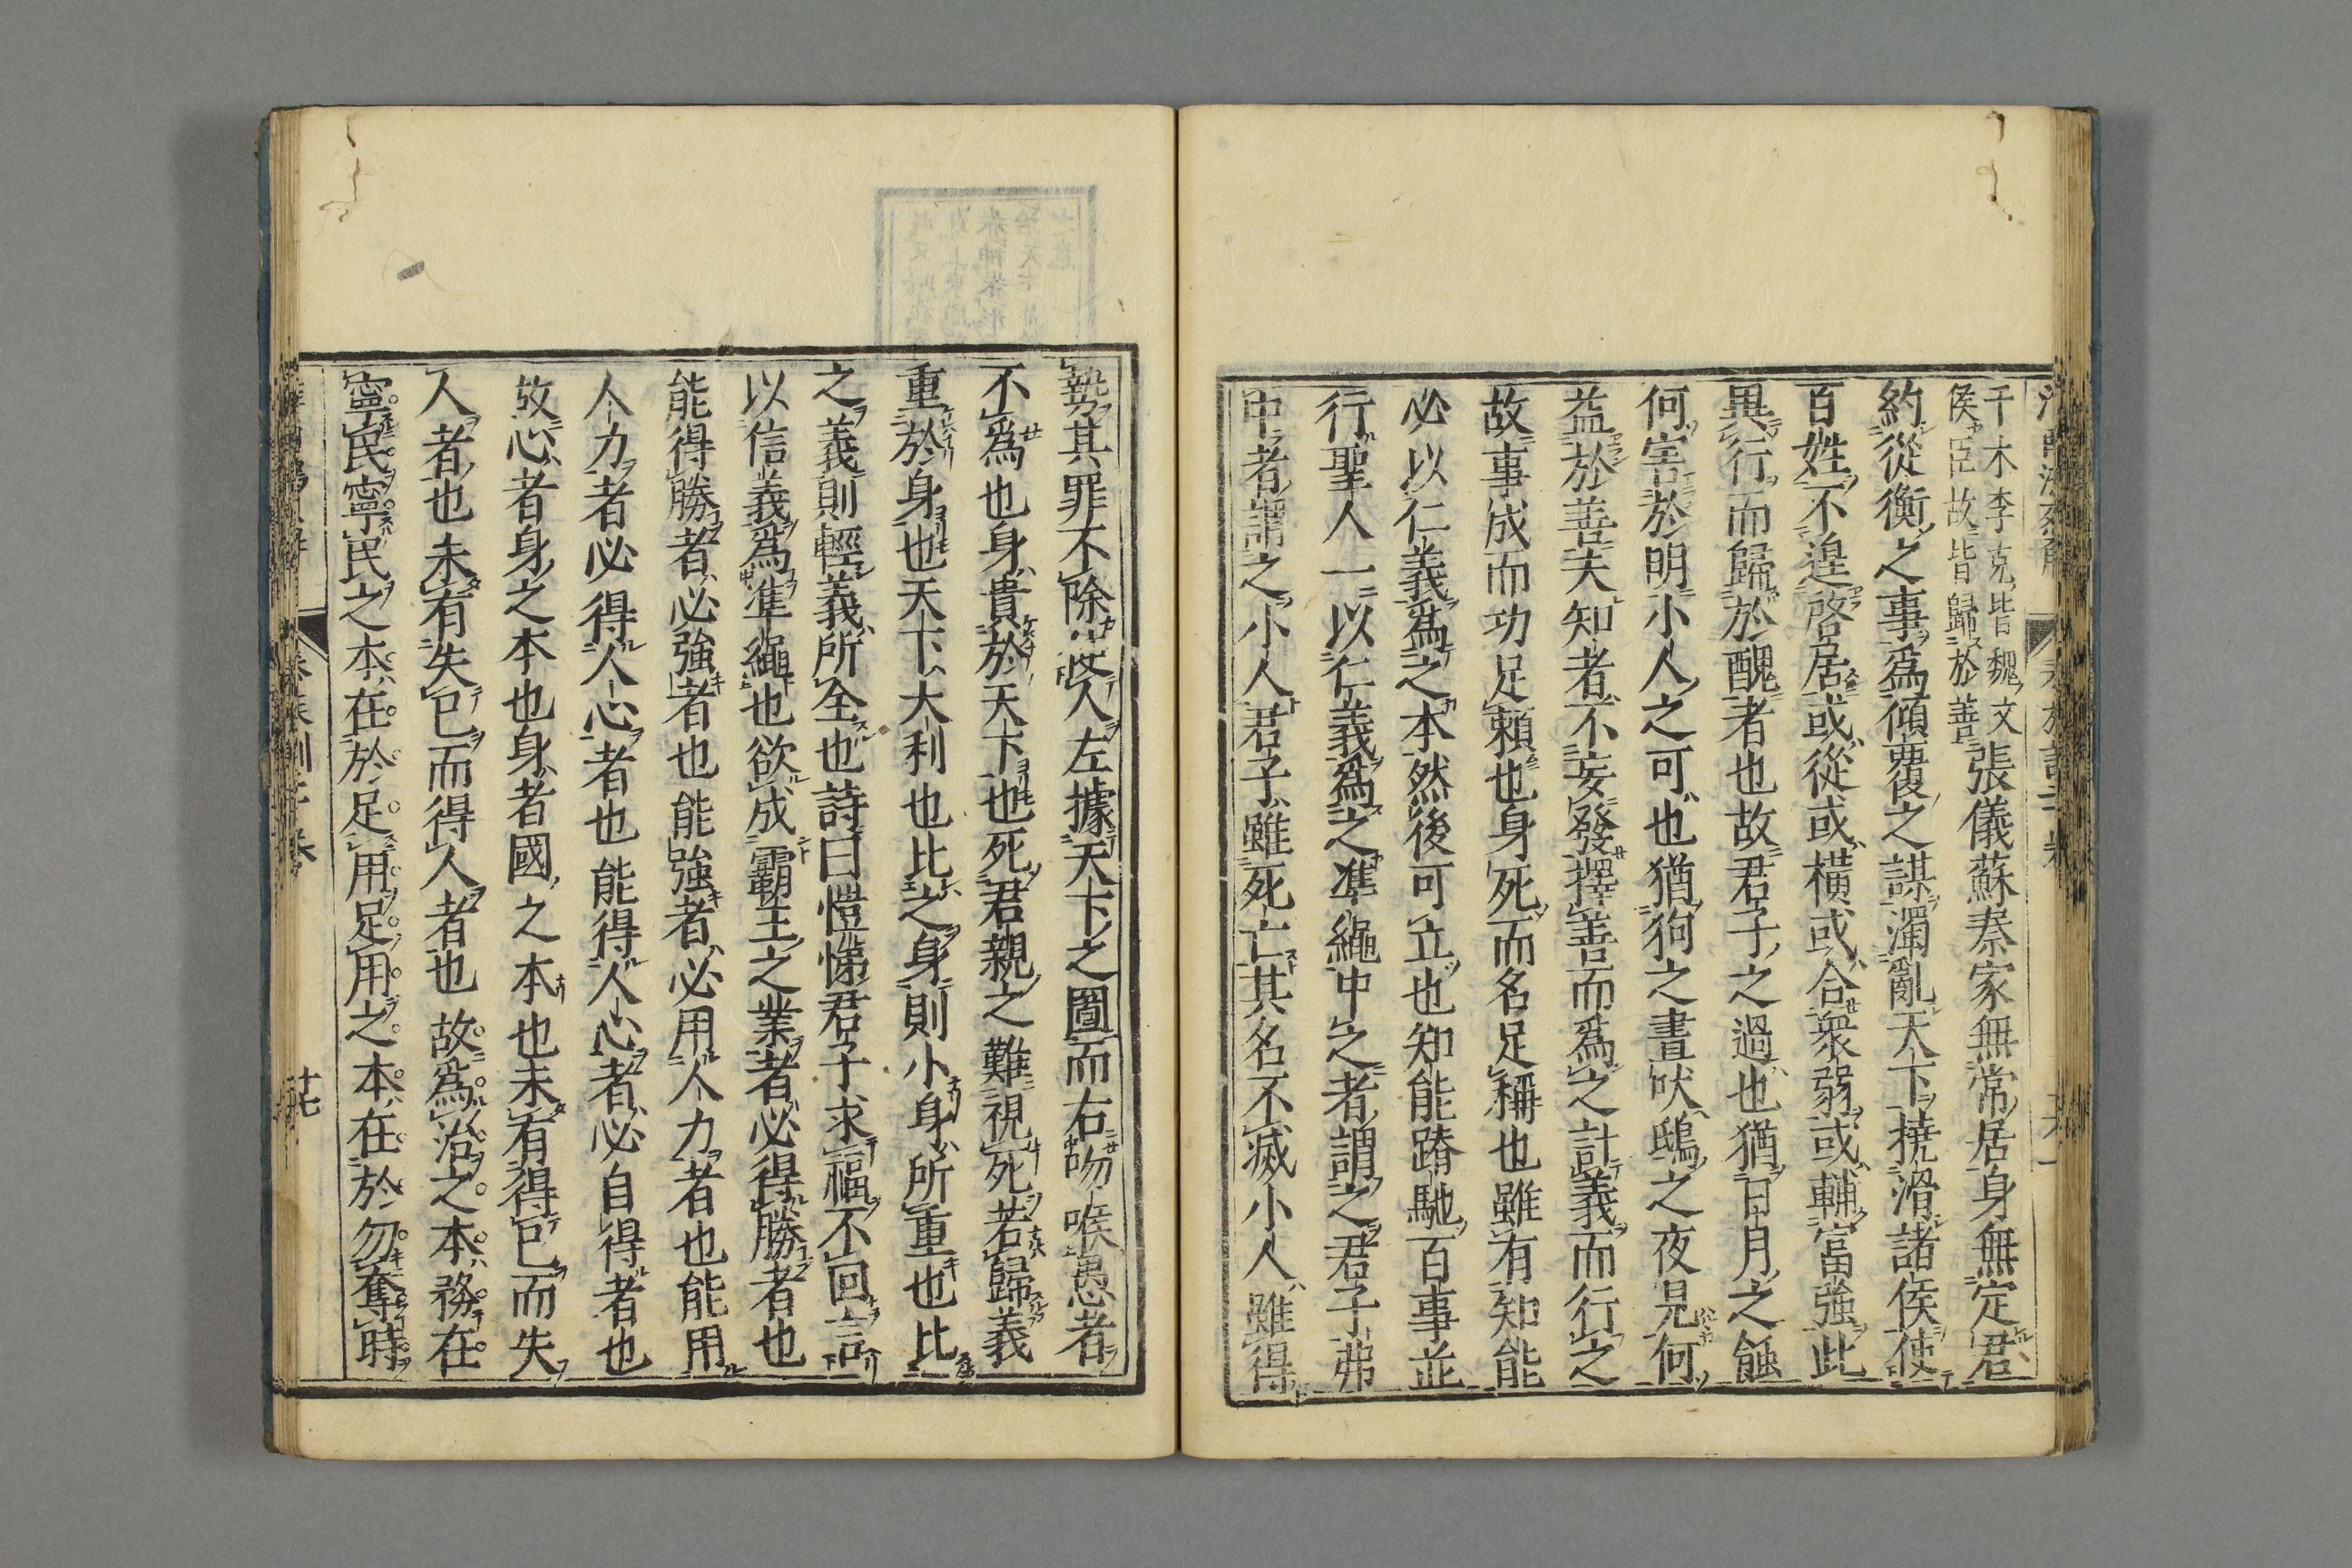 干木李克皆魏文
侯臣故皆歸於善
張儀蘇秦家無常居身無定君
約從衡之事爲傾覆之謀濁亂天下撓滑諸侯使
百姓不遑啓居或從或橫或合衆弱或輔富強此
異行而歸於醜者也故君子之過也猶日月之蝕
何害於明小人之可也猶狗之晝吠鴟之夜見何
益於善夫知者不妄發擇善而爲之計義而行之
故事成而功足賴也身死而名足稱也雖有知能
必以仁義爲之本然後可立也知能蹐馳百事並
行聖人一以仁義爲之凖繩中之者謂之君子弗
中者謂之小人君子雖死亡其名不滅小人雖得
勢其罪不除使人左據天下之圖而右吻喉愚者
不爲也身貴於天下也死君親之難視死若歸義
重於身也天下大利也比之身則小身所重也比
之義則輕義所全也詩曰愷悌君子求福不回言
以信義爲凖繩也欲成霸王之業者必得勝者也
能得勝者必強者也能強者必用人力者也能用
人力者必得人心者也能得人心者必自得者也
故心者身之本也身者國之本也未有得已而失
人者也未有失已而得人者也故爲治之本務在
寧民寧民之本在於足用足用之本在於勿奪時
十七